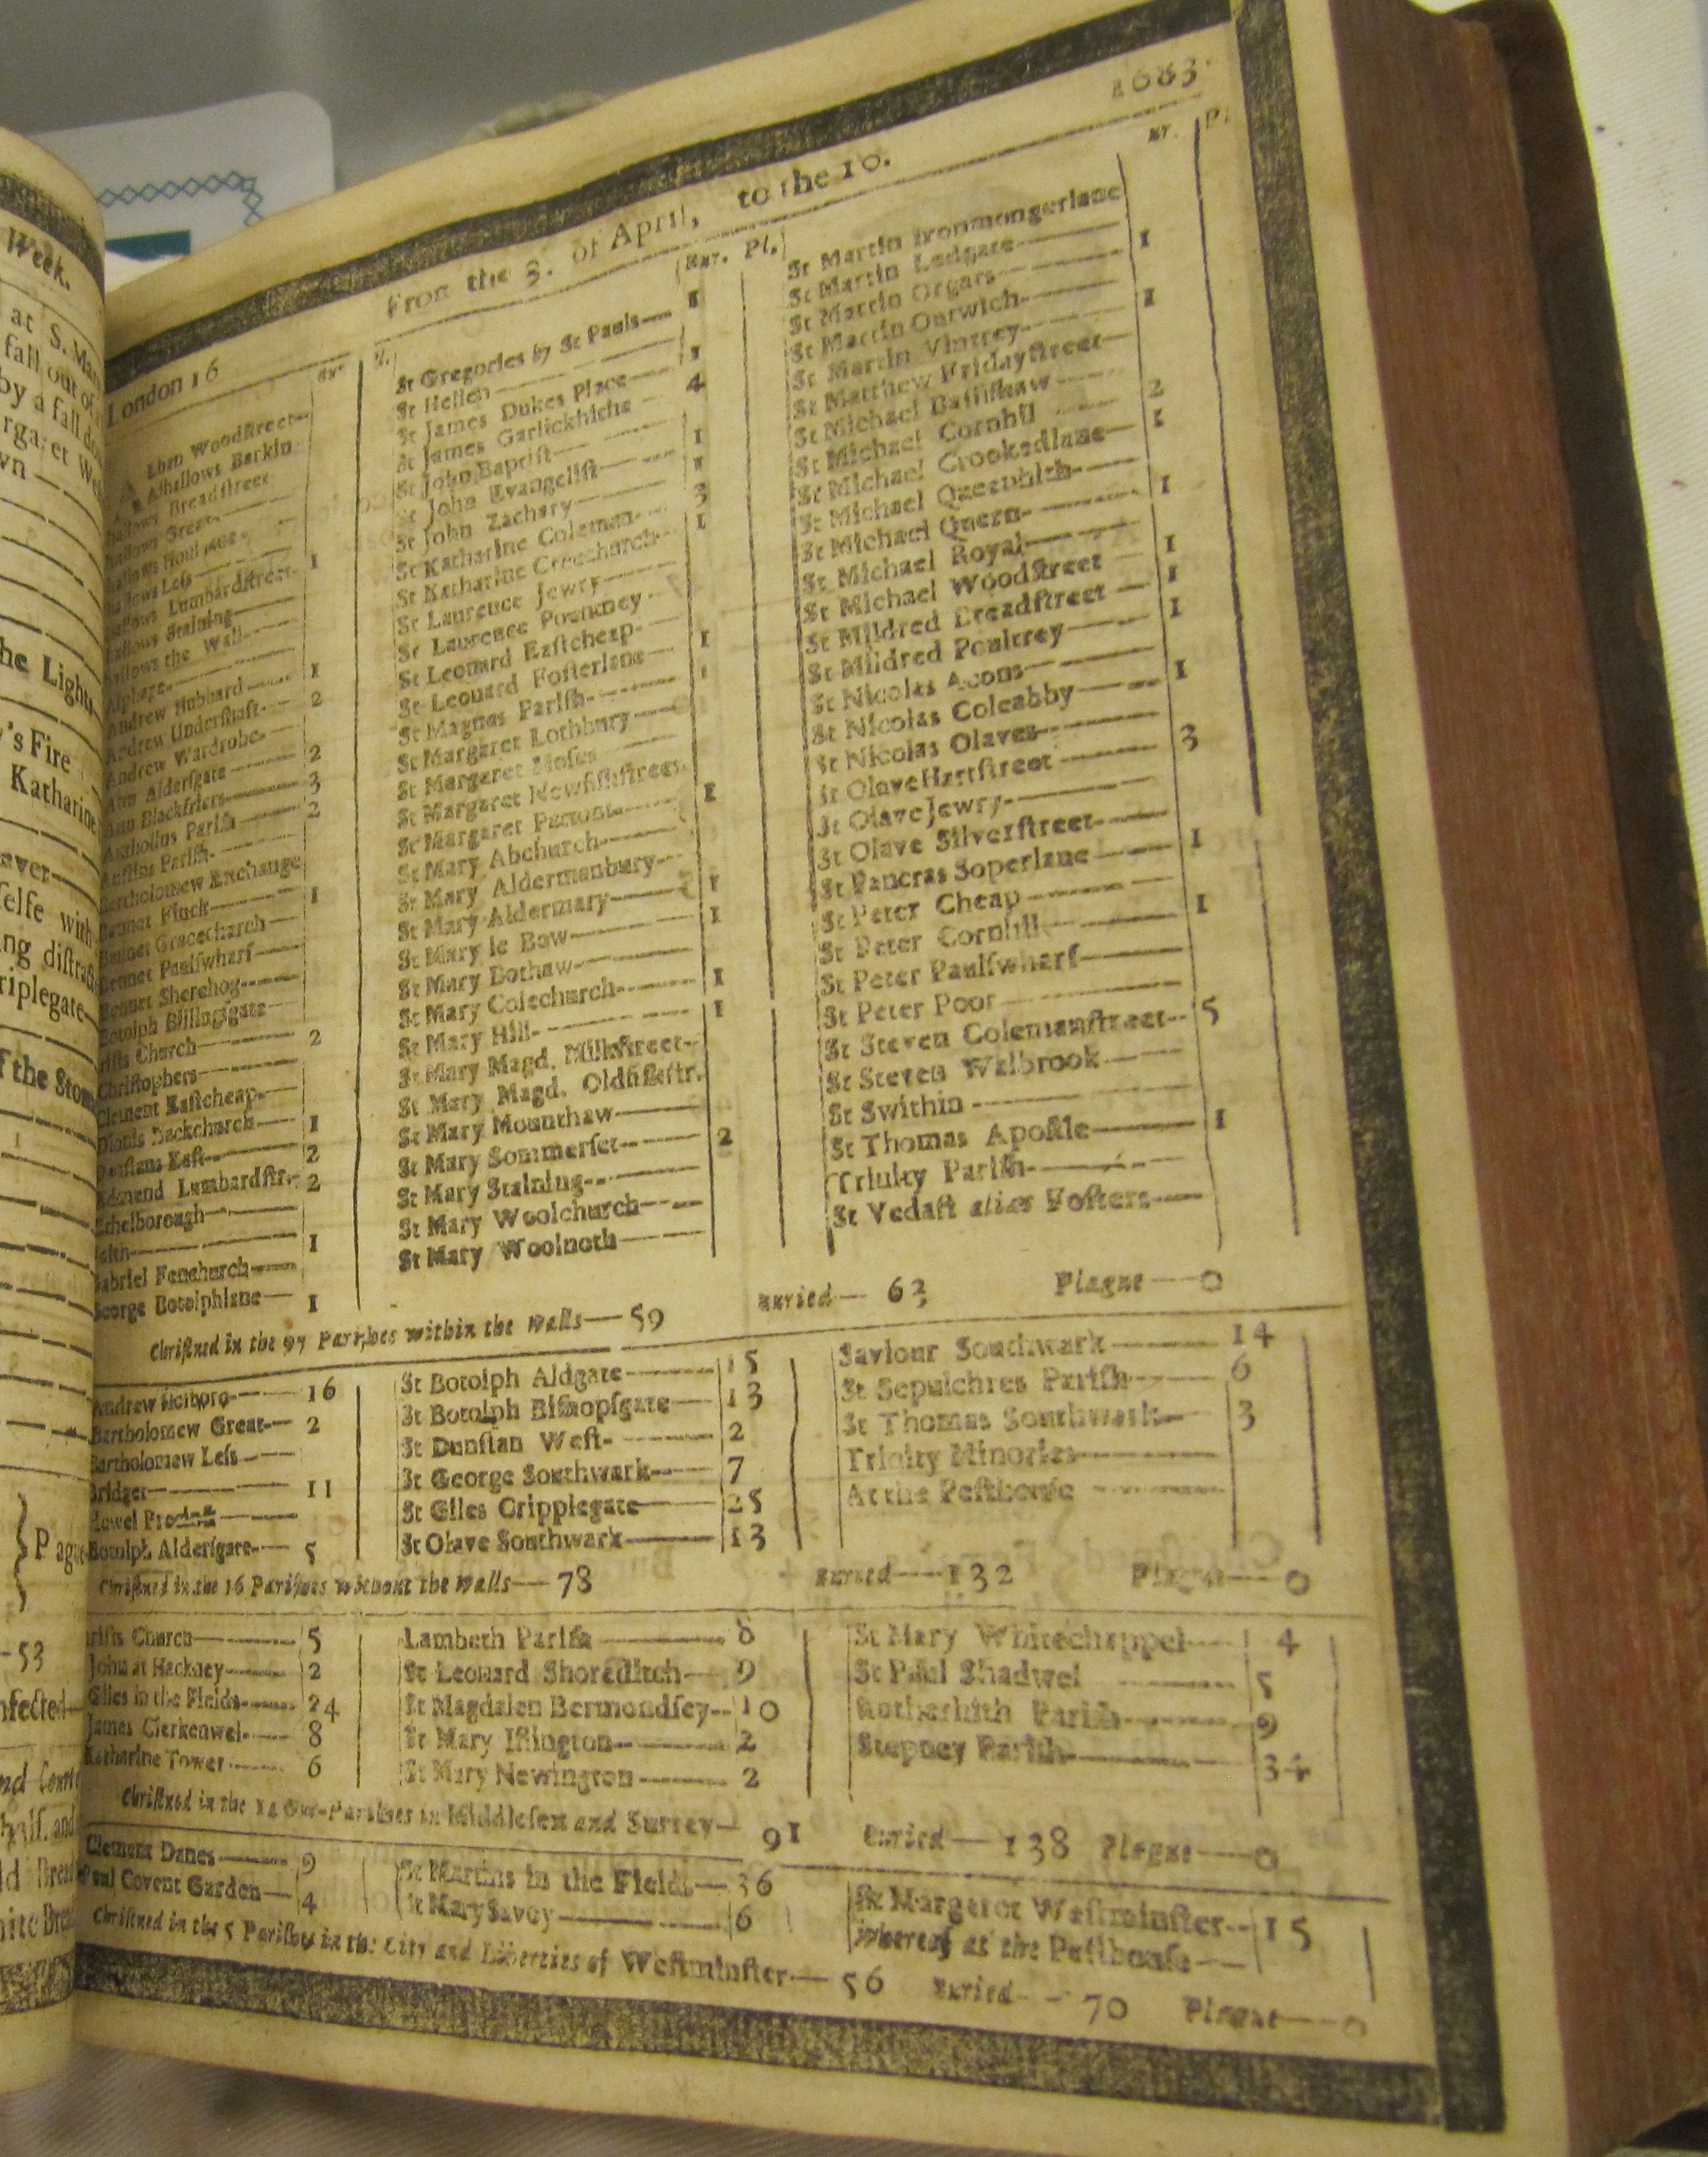 Week.
at S. Mar
fall out of
by a fall do
rgaret We
wn
he Light
y's Fire
Katharine
aver
felfe with
ng diſtra
riplegate
f the Stom
Pag
53
nfected
nd
half, and
ld Brea
ite Brea
London 16 From the 3. of April, to the 10. 1683.
Bur. Pl.
lban Woodſtreet
Alhallows Barkin
hallows Breadſtreet
hallows Great
allows Leſs 1
allows Lumbardſtreet
allows Staining
allows the Wall
Alphage
Andrew Hubbard 1
Andrew Underſhaft 2
Andrew Wardrobe
Ann Alderſgate 2
Ann Blackfriers 3
Antholins Pariſh 2
Auſtins Pariſh
Bartholomew Exchange
Bennet Finck 1
Bennet Gracechurch
Bennet Paulſwharf
Bennet Sherehog
Botolph Billingſgate
riſts Church 2
Chriſtophers
Clement Eaſtcheap
Dionis Backchurch 1
Dunſtans Eaſt 2
Edmund Lumbardſtr. 2
Ethelborough
Faith 1
Gabriel Fenchurch
George Botolphlane 1
Bur. Pl.
St Gregories by St Pauls 1
St Hellen
St James Dukes Place 1
St James Garlickhithe 4
St John Baptiſt
St John Evangeliſt 1
St John Zachary 1
St Katharine Coleman 3
St Katharine Creechurch 1
St Laurence Jewry
St Laurence Pountney
St Leonard Eaſtcheap
St Leonard Foſterlane 1
St Magnus Pariſh 1
St Margaret Lothbury
St Margaret Moſes
St Margaret Newfiſhſtreet
St Margaret Pattons 1
St Mary Abchurch
St Mary Aldermanbury
St Mary Aldermary 1
St Mary le Bow 1
St Mary Bothaw
St Mary Colechurch 1
St Mary Hill 1
St Mary Magd. Milkſtreet
St Mary Magd. Oldfiſhſtr.
St Mary Mounthaw
St Mary Sommerſet 2
St Mary Staining
St Mary Woolchurch
St Mary Woolnoth
Bur. Pl.
St Martin Ironmongerlane
St Martin Ludgate 1
St Martin Orgars
St Martin Outwich 1
St Martin Vintrey
St Matthew Fridayſtreet
St Michael Baſſiſhaw 2
St Michael Cornhil 1
St Michael Crookedlane
St Michael Queenhith 1
St Michael Quern
St Michael Royal 1
St Michael Woodſtreet 1
St Mildred Breadſtreet 1
St Mildred Poultrey
St Nicolas Acons 1
St Nicolas Coleabby
St Nicolas Olaves 3
St Olave Hartſtreet
St Olave Jewry
St Olave Silverſtreet 1
St Pancras Soperlane
St Peter Cheap 1
St Peter Cornhill
St Peter Paulſwharf
St Peter Poor
St Steven Colemanſtreet 5
St Steven Walbrook
St Swithin
St Thomas Apoſtle 1
Trinity Pariſh
St Vedaſt alias Foſters
Chriſtned in the 97 Pariſhes within the Walls—59 Buried—63 Plague—0
Andrew Holborn 16
Bartholomew Great 2
Bartholomew Leſs
Bridget 11
dewel Precinct
Botolph Alderſgate 5
St Botolph Aldgate 15
St Botolph Biſhopſgate 13
St Dunſtan Weſt 2
St George Southwark 7
St Giles Cripplegate 25
St Olave Southwark 13
Saviour Southwark 14
St Sepulchres Pariſh 6
St Thomas Southwark 3
Trinity Minories
At the Peſthouſe
Chriſtned in the 16 Pariſhes without the Walls—78 Buried—132 Plague—0
riſts Church 5
John at Hackney 2
Giles in the Fields 24
James Clerkenwel 8
Katharine Tower 6
Lambeth Pariſh 8
St Leonard Shoreditch 9
St Magdalen Bermondſey 10
St Mary Iſlington 2
St Mary Newington 2
St Mary Whitechappel 4
St Paul Shadwel 5
Rotherhith Pariſh 9
Stepney Pariſh 34
Chriſtned in the 14 Out-Pariſhes in Middleſex and Surrey—91 Buried—138 Plague—0
Clement Danes 9
Paul Covent Garden 4
St Martins in the Fields 36
St Mary Savoy 6
St Margaret Weſtminſter 15
Whereof at the Peſthouſe
Chriſtned in the 5 Pariſhes in the City and Liberties of Weſtminſter—56 Buried—70 Plague—0